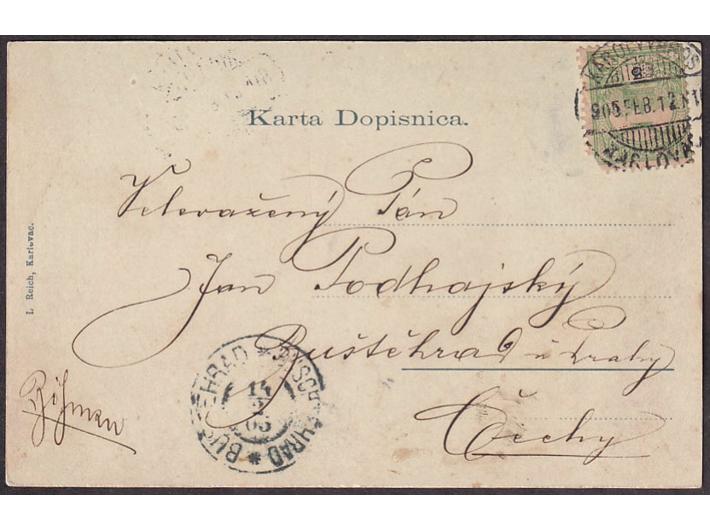 KÁROLYVÁROS
905 FEB. 12
KARLOVAC
Karta Dopisnica.
Velevažený Pán
Jan Podhajský
Buštěhrad u Prahy
Čechy
Böhmen
BUSCHTĚHRAD * BUŠTĚHRAD *
14
2
05
L. Reich, Karlovac.